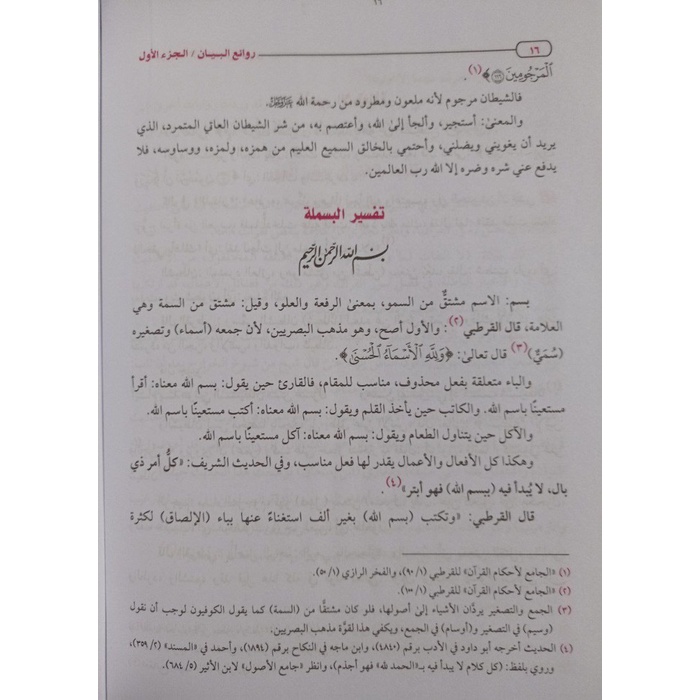 ١٦
روائع البـيــان / الـجـزء الأول
الْمَرْجُومِينَ﴾(١).
فالشيطان مرجوم لأنه ملعون ومطرود من رحمة الله ﷻ.
والمعنىٰ: أستجير، وألجأ إلىٰ الله، وأعتصم به، من شر الشيطان العاتي المتمرد، الذي
يريد أن يغويني ويضلني، وأحتمي بالخالق السميع العليم من همزه، ولمزه، ووساوسه، فلا
يدفع عني شره وضره إلا الله رب العالمين.
تفسير البسملة
بسم الله الرحمن الرحيم
بسم: الاسم مشتقٌّ من السمو، بمعنىٰ الرفعة والعلو، وقيل: مشتق من السمة وهي
العلامة، قال القرطبي(٢): والأول أصح، وهو مذهب البصريين، لأن جمعه (أسماء) وتصغيره
(سُمَيّ)(٣) قال تعالىٰ: ﴿وَلِلَّهِ الْأَسْمَاءُ الْحُسْنَىٰ﴾.
والباء متعلقة بفعل محذوف، مناسب للمقام، فالقارئ حين يقول: بسم الله معناه: أقرأ
مستعينًا باسم الله. والكاتب حين يأخذ القلم ويقول: بسم الله معناه: أكتب مستعينًا باسم الله.
والآكل حين يتناول الطعام ويقول: بسم الله معناه: آكل مستعينًا باسم الله.
وهكذا كل الأفعال والأعمال يقدر لها فعل مناسب، وفي الحديث الشريف: «كلُّ أمر ذي
بال، لا يُبدأ فيه (ببسم الله) فهو أبتر»(٤).
قال القرطبي: «وتكتب (بسم الله) بغير ألف استغناءً عنها بباء (الإلصاق) لكثرة
(١) «الجامع لأحكام القرآن» للقرطبي (١/ ٩٠)، والفخر الرازي (١/ ٥٠).
(٢) «الجامع لأحكام القرآن» للقرطبي (١/ ١٠٠).
(٣) الجمع والتصغير يردّان الأشياء إلىٰ أصولها، فلو كان مشتقًا من (السمة) كما يقول الكوفيون لوجب أن تقول
(وسيم) في التصغير و(أوسام) في الجمع، ويكفي هذا لقوَّة مذهب البصريين.
(٤) الحديث أخرجه أبو داود في الأدب برقم (٤٨٤٠)، وابن ماجه في النكاح برقم (١٨٩٤)، وأحمد في «المسند» (٢/ ٣٥٩)،
وروي بلفظ: (كل كلام لا يبدأ فيه بـ«الحمد لله» فهو أجذم)، وانظر «جامع الأصول» لابن الأثير (٥/ ٦٨٤).